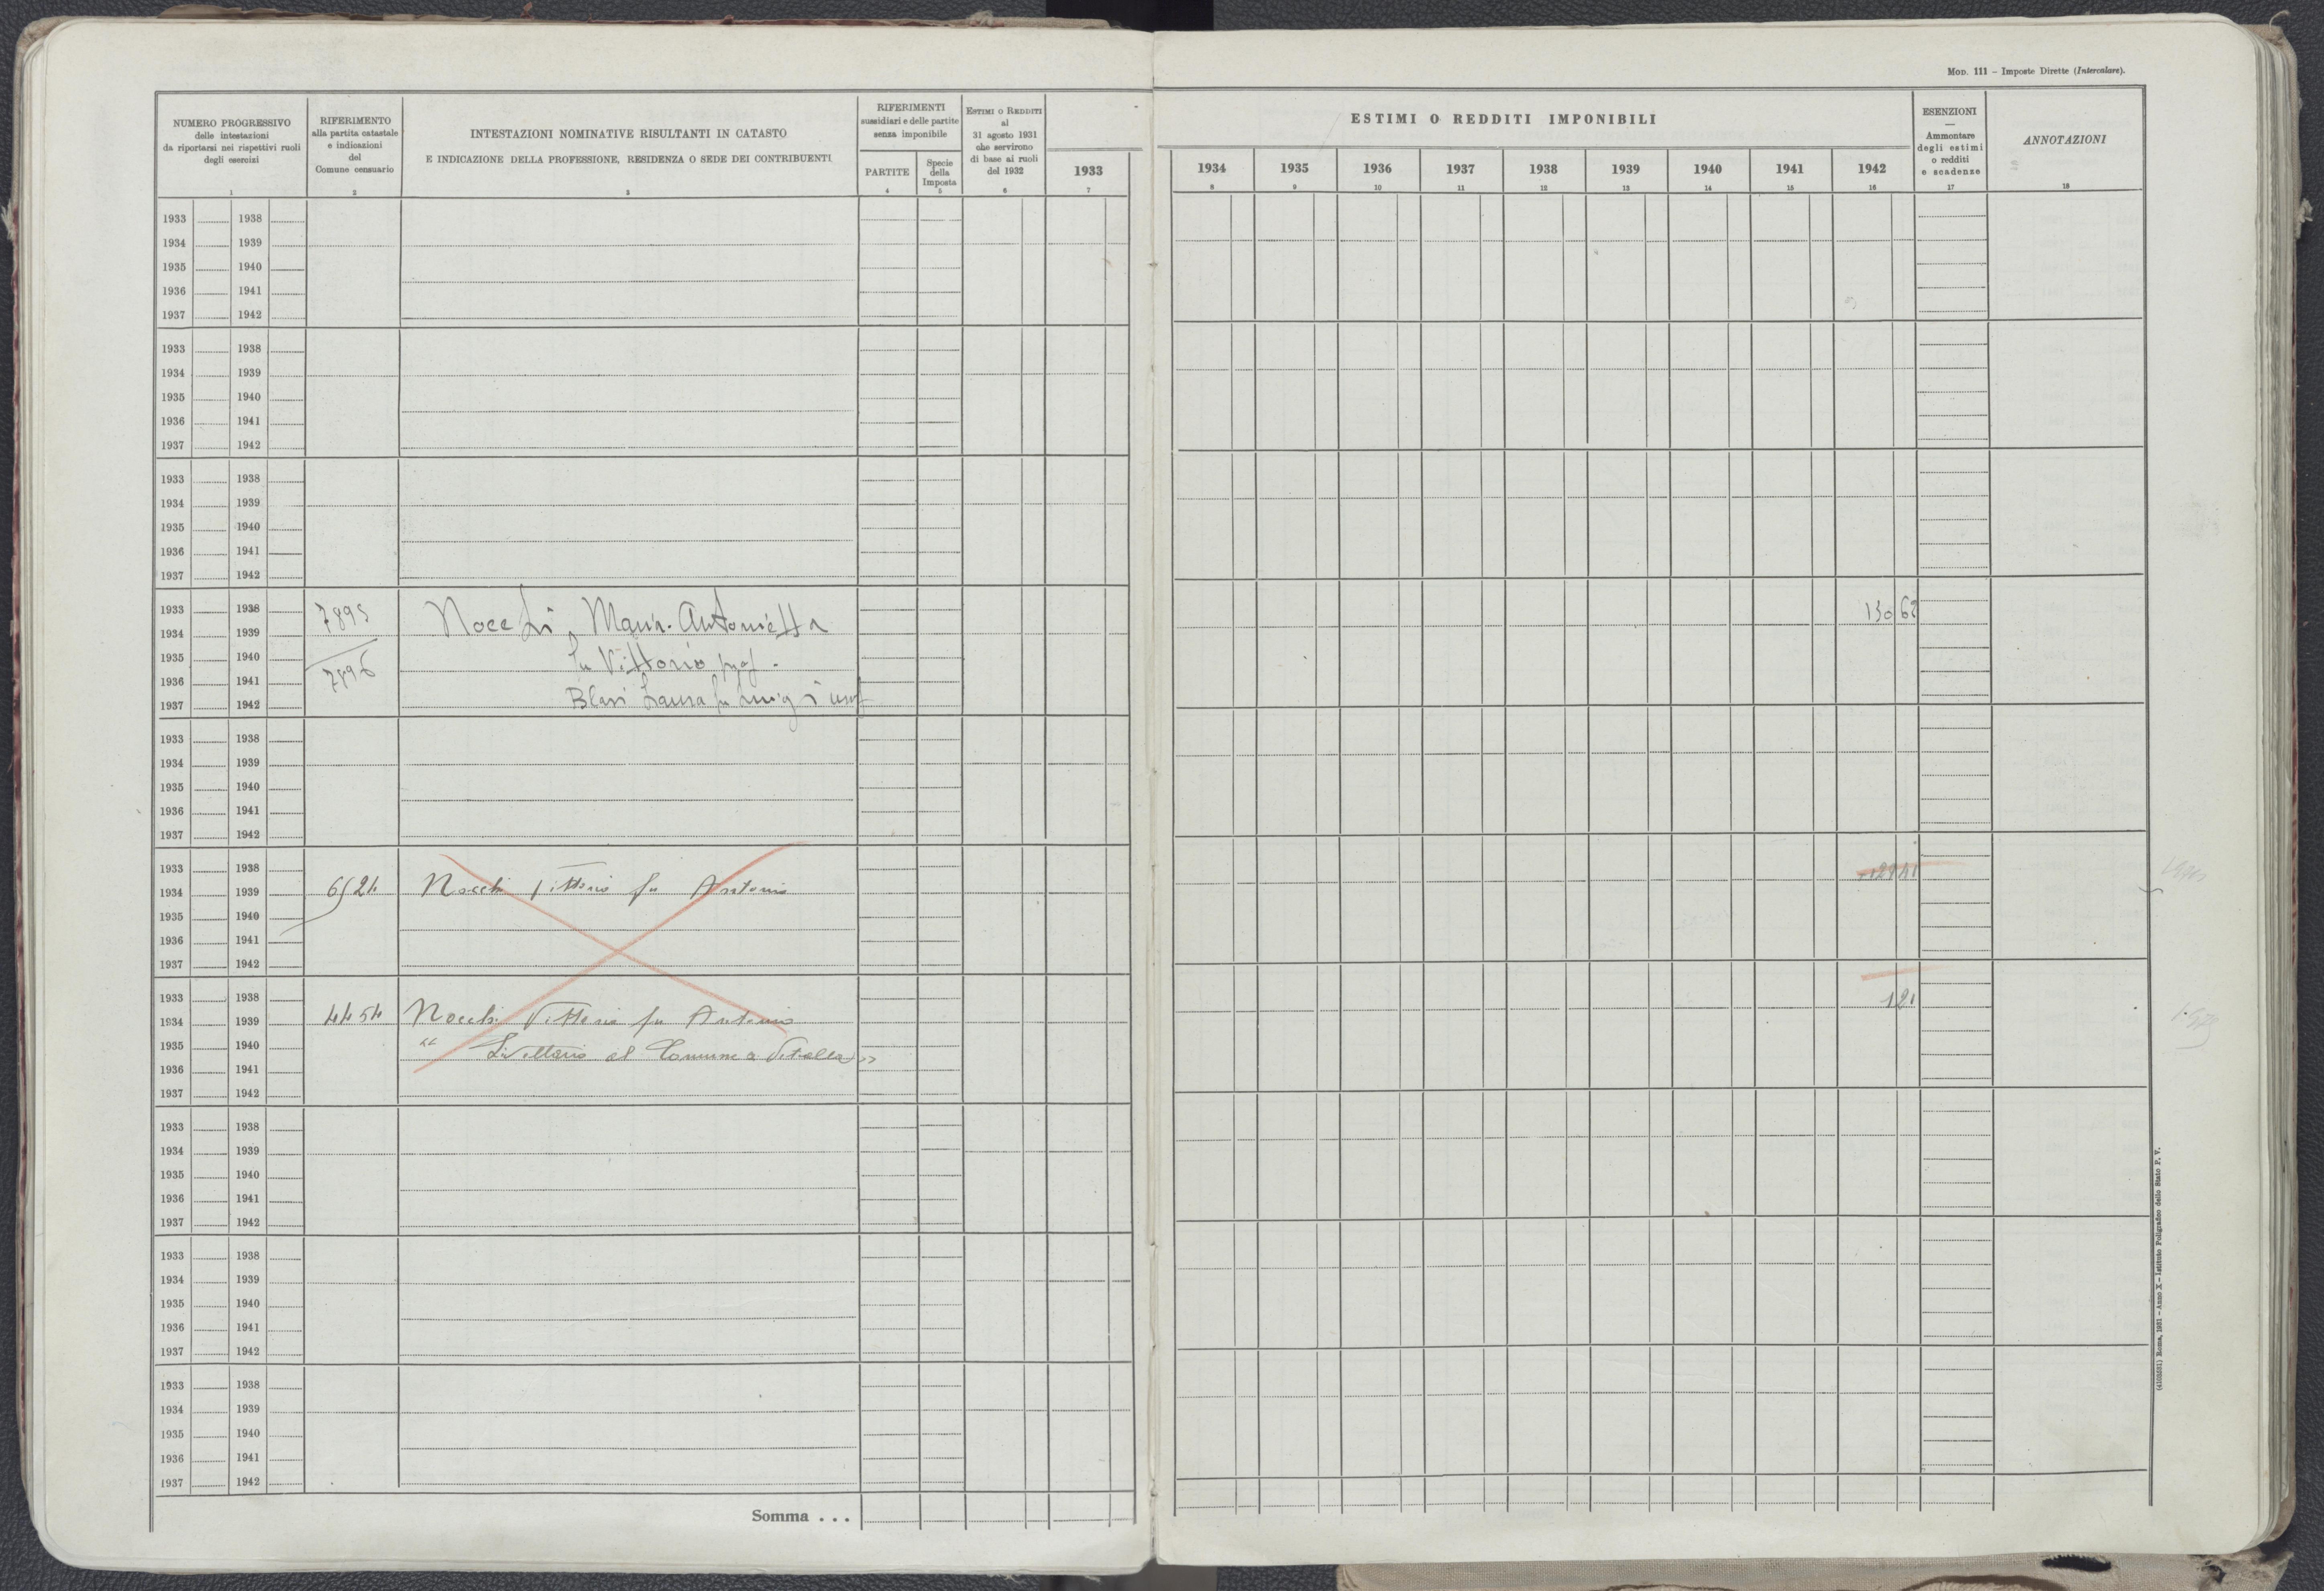 MOD. 111 – Imposte Dirette (Intercalare).
NUMERO PROGRESSIVO
delle intestazioni
da riportarsi nei rispettivi ruoli
degli esercizi
1
RIFERIMENTO
alla partita catastale
e indicazioni
del
Comune censuario
2
INTESTAZIONI NOMINATIVE RISULTANTI IN CATASTO
E INDICAZIONE DELLA PROFESSIONE, RESIDENZA O SEDE DEI CONTRIBUENTI
3
RIFERIMENTI
sussidiari e delle partite
senza imponibile
PARTITE
4
Specie
della
Imposta
5
ESTIMI O REDDITI
al
31 agosto 1931
che servirono
di base ai ruoli
del 1932
6
1933
7
ESTIMI O REDDITI IMPONIBILI
1934 1935 1936 1937 1938 1939 1940 1941 1942
8 9 10 11 12 13 14 15 16
ESENZIONI
—
Ammontare
degli estimi
o redditi
e scadenze
17
ANNOTAZIONI
18
1933 1938
1934 1939
1935 1940
1936 1941
1937 1942
1933 1938
1934 1939
1935 1940
1936 1941
1937 1942
1933 1938
1934 1939
1935 1940
1936 1941
1937 1942
1933 1938 7895 Nocchi Maria Antonietta 130 62
1934 1939
1935 1940 fu Vittorio prof.
1936 1941 7896
1937 1942 Blasi Laura fu Luigi usuf
1933 1938
1934 1939
1935 1940
1936 1941
1937 1942
1933 1938
1934 1939 6524 Nocchi Vittorio fu Antonio
1935 1940
1936 1941
1937 1942
1933 1938 121
1934 1939 4454 Nocchi Vittorio fu Antonio
1935 1940 “ Livellario al Comune a Vitalla »
1936 1941
1937 1942
1933 1938
1934 1939
1935 1940
1936 1941
1937 1942
1933 1938
1934 1939
1935 1940
1936 1941
1937 1942
1933 1938
1934 1939
1935 1940
1936 1941
1937 1942
Somma . . .
(4103531) Roma, 1931 – Anno X – Istituto Poligrafico dello Stato P. V.